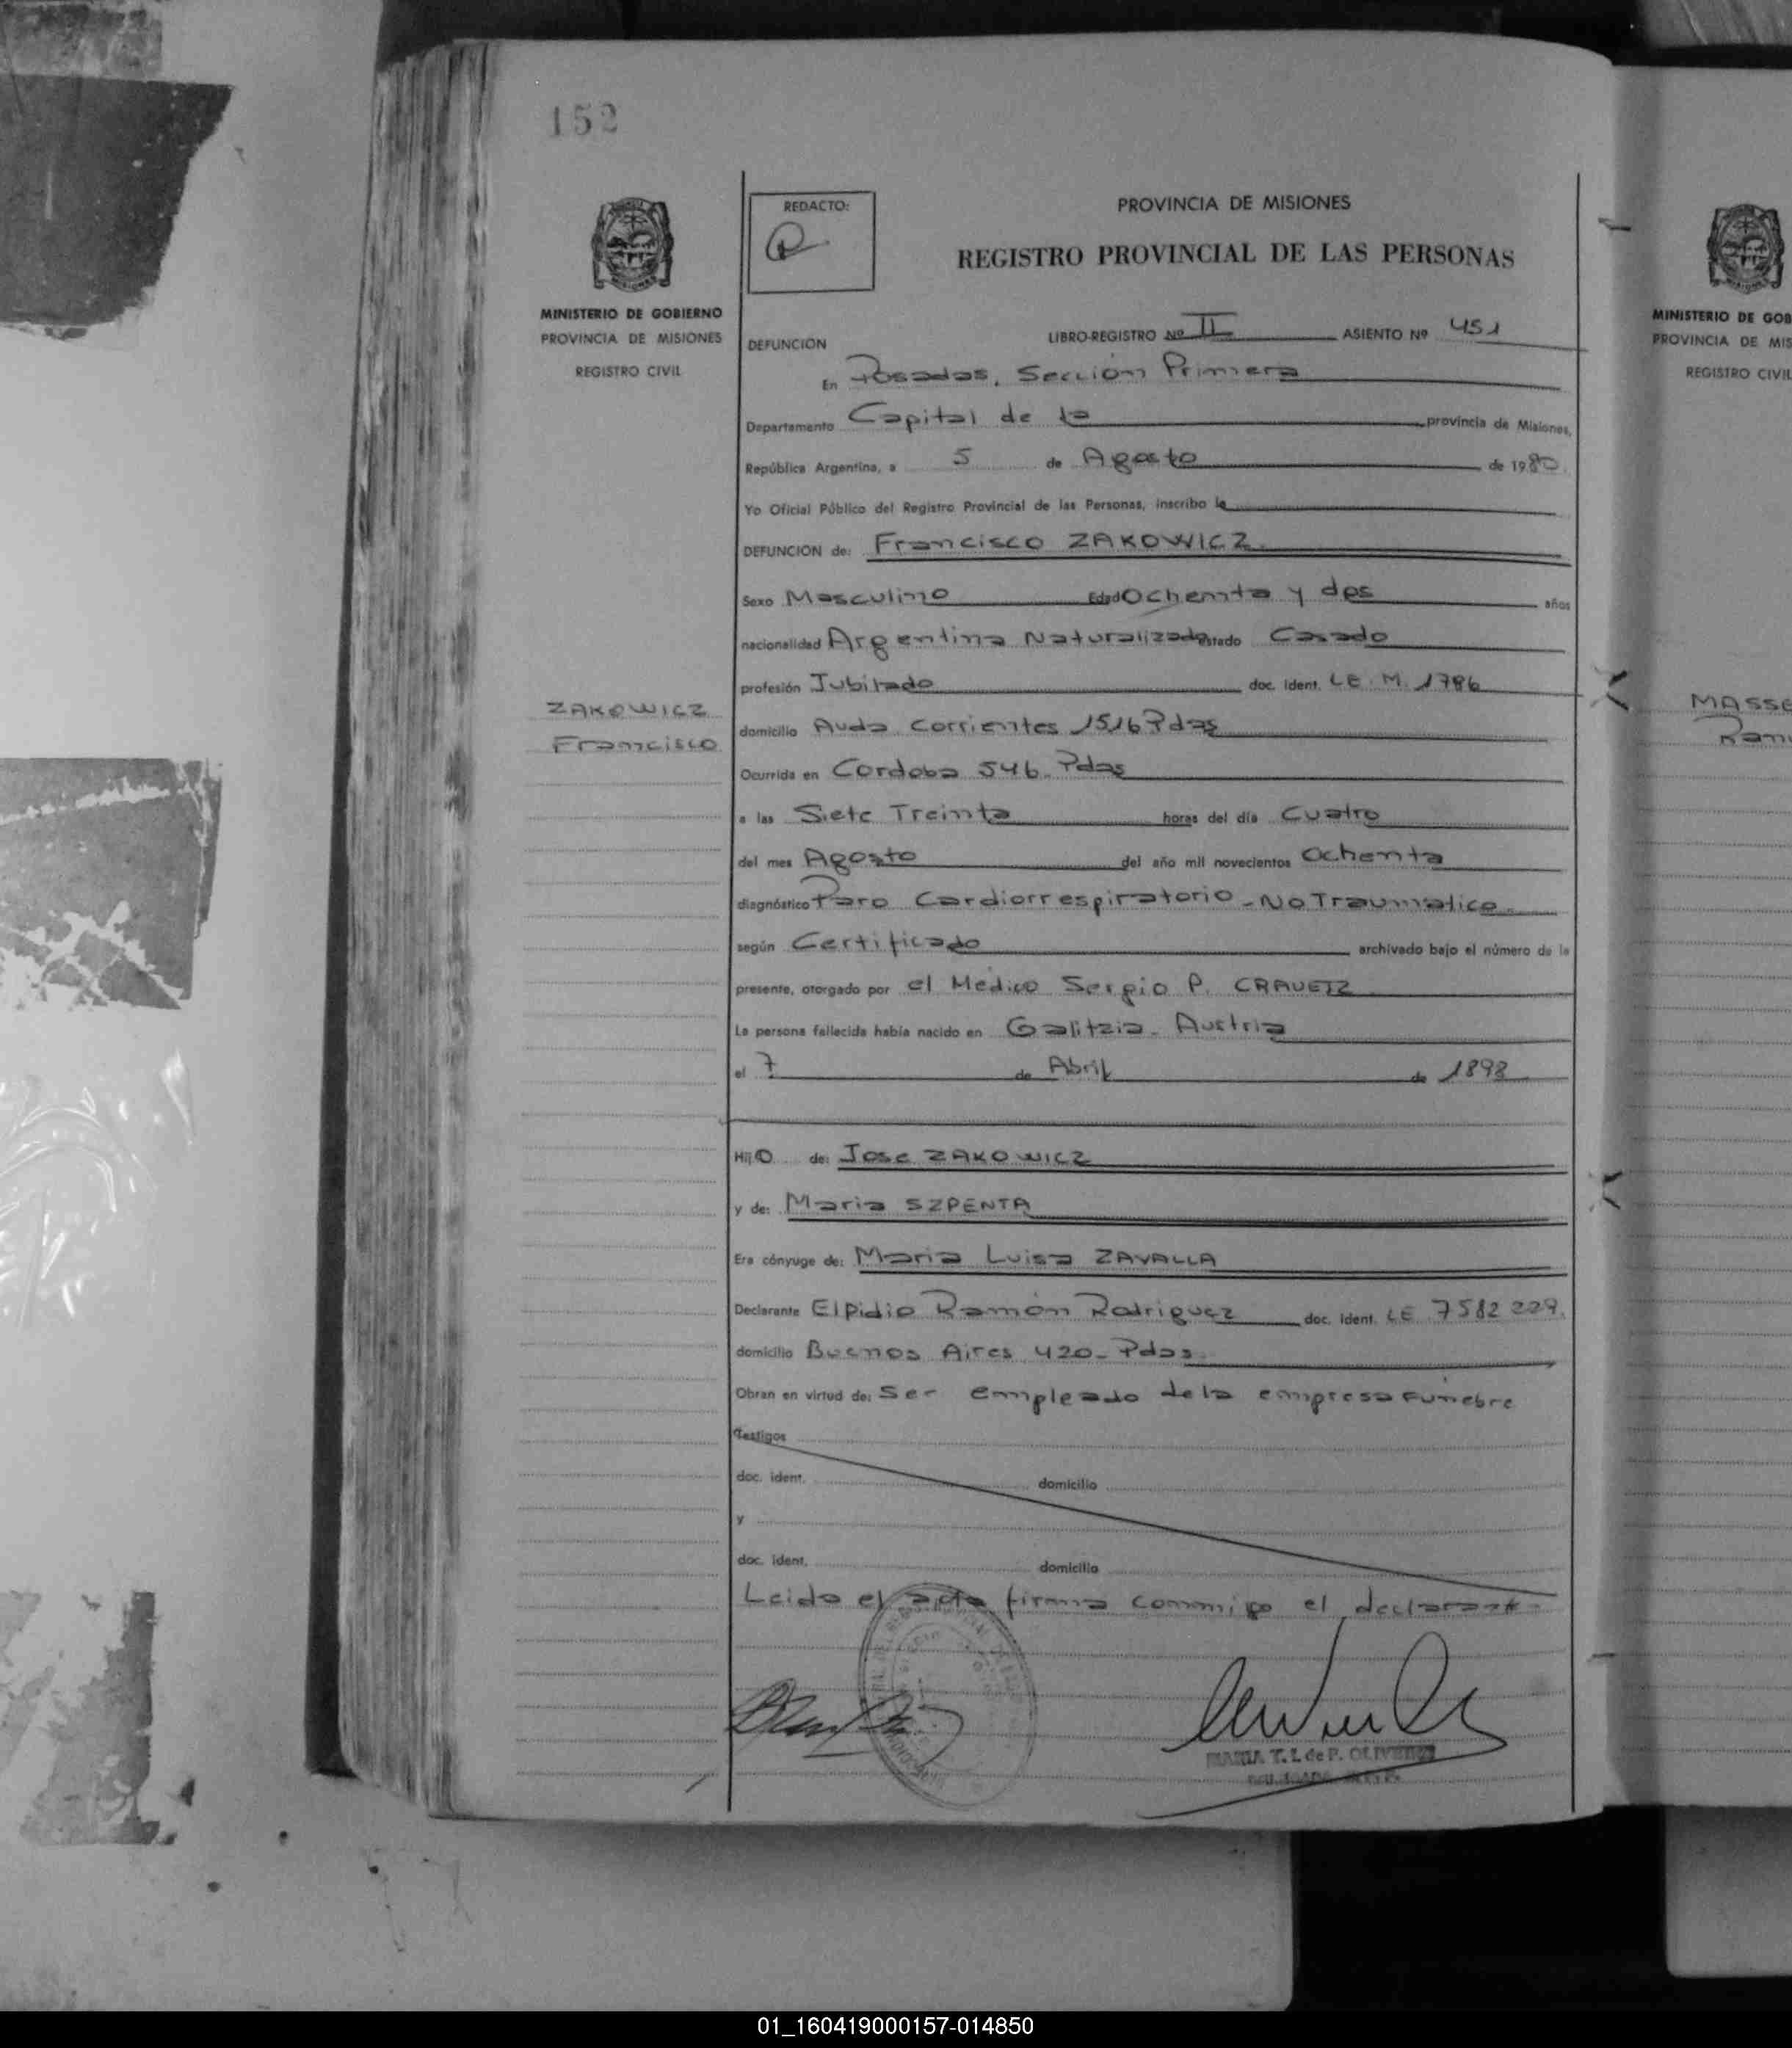 152
REDACTO:
PROVINCIA DE MISIONES
REGISTRO PROVINCIAL DE LAS PERSONAS
MINISTERIO DE GOBIERNO
PROVINCIA DE MISIONES
REGISTRO CIVIL
DEFUNCION
LIBRO-REGISTRO Nº II ASIENTO Nº 451
En Posadas, Sección Primera
Departamento Capital de la provincia de Misiones,
República Argentina, a 5 de Agosto de 1980.
Yo Oficial Público del Registro Provincial de las Personas, inscribo la
DEFUNCION de: Francisco ZAKOWICZ.
Sexo Masculino Edad Ochenta y dos años
nacionalidad Argentina Naturalizado estado Casado
profesión Jubilado doc. ident. LE. M. 1786
ZAKOWICZ
Francisco
domicilio Avda Corrientes 1516 Pdas
Ocurrida en Cordoba 546. Pdas
a las Siete Treinta horas del día Cuatro
del mes Agosto del año mil novecientos Ochenta
diagnóstico Paro Cardiorrespiratorio - No Traumatico.
según Certificado archivado bajo el número de la
presente, otorgado por el Médico Sergio P. CRAVETZ
La persona fallecida había nacido en Galitzia - Austria
el 7 de Abril de 1898
Hijo de: Jose ZAKOWICZ
y de: Maria SZPENTA
Era cónyuge de: Maria Luisa ZAVALLA
Declarante Elpidio Ramón Rodriguez doc. ident. LE 7582 229.
domicilio Buenos Aires 420 - Pdas.
Obran en virtud de: Ser empleado de la empresa Funebre
Testigos
doc. ident. domicilio
y
doc. ident. domicilio
Leida el acta firma conmigo el declarante
MARIA T. I. de P. OLIVERA
MINISTERIO DE GOB
PROVINCIA DE MIS
REGISTRO CIVIL
MASSE
Ram
01_160419000157-014850